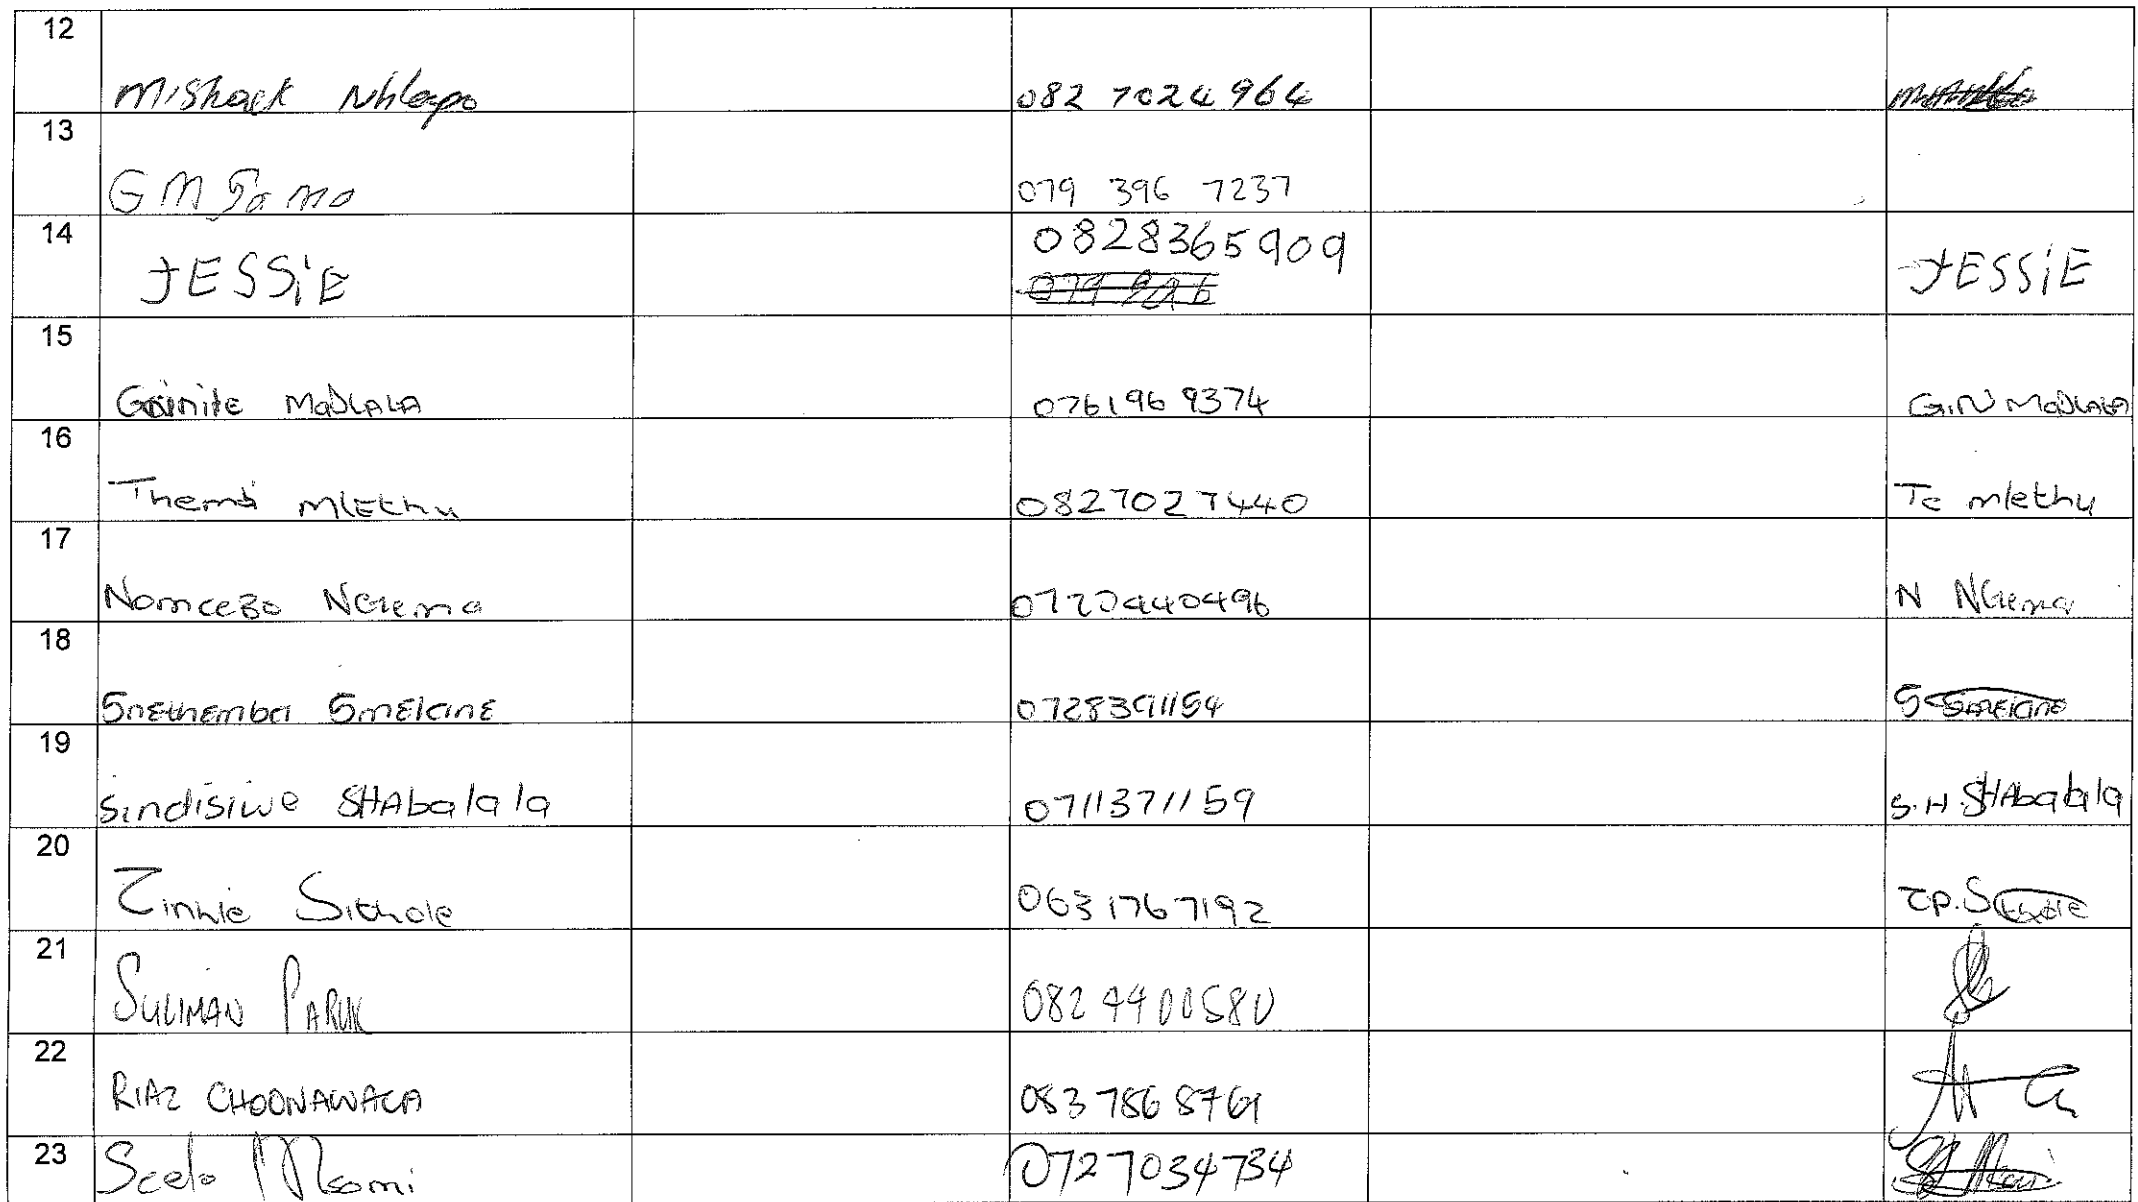 12
Mishack Nhlapo 082 7024 964
13
GM 079 396 7237
14
JESSiE 0828365909 JESSiE
15
MaDLALA 0761969374 G.N MaDLALA
16
Themb MlEthu 0827027440 Te mlethu
17
NomceBo NGema 0720440496 N NGema
18
SnEthemba SmElanE 0728391154 S SmElanE
19
Sindisiwe SHAbalala 0711371159 S.H.SHAbalala
20
Zinhle Sithole 0631767192 ZP.Sithole
21
SULIMAN PARUK 082 4400580
22
RIAZ CHOONAWALA 083 786 8761
23
Scelo Msomi 0727034734